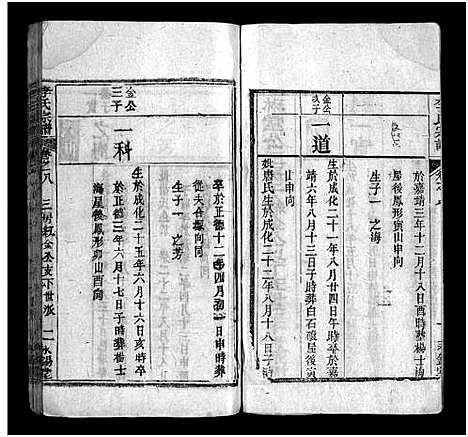 李氏宗譜
金公
次子
一道
生於成化二十一年八月廿四日午時卒於嘉
靖六年八月十三日子時葬白石礅星後寅
甲申向
妣唐氏生於成化二十二年八月十八日子時
於嘉靖三年十二月十八日酉時葬楊士海
星後鳳形寅山申向
生子一 之海
卒於正德十二年四月初二日申時葬
從夫合墓向同
生子一 之芳
金公
三子
一科
生於成化二十五年六月十六日亥時卒
於正德三年六月十七日子時葬楊士
海星後鳳形卯山酉向
李氏宗譜
卷之八
三房叔金公亥下世派
二